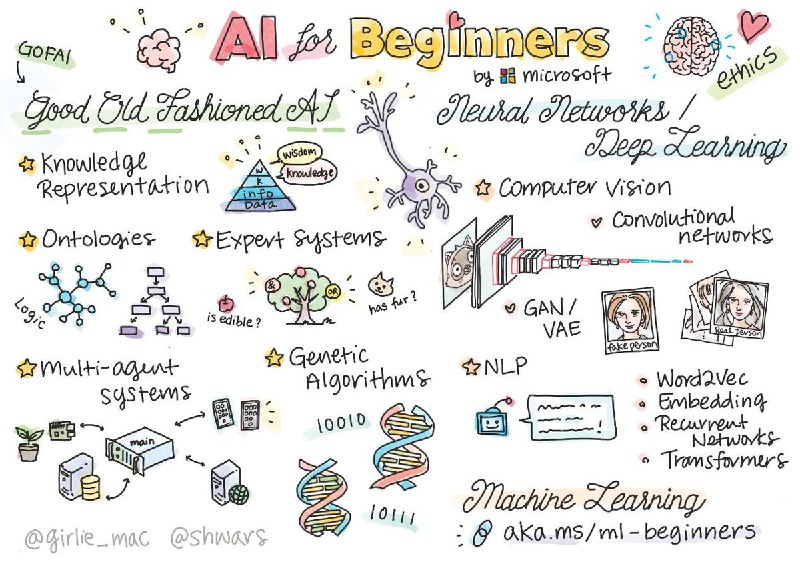 AI for Beginners
by microsoft
GOFAI
ethics
Good Old Fashioned AI
Knowledge
Representation
wisdom
knowledge
W
K
info
Data
Ontologies
Logic
Expert Systems
&
OR
is edible?
has fur?
Multi-agent
systems
main
Genetic
Algorithms
10010
10111
Neural Networks /
Deep Learning
Computer Vision
Convolutional
networks
GAN/
VAE
fake person
Real Person
NLP
Word2Vec
Embedding
Recurrent
Networks
Transformers
Machine Learning
aka.ms/ml-beginners
@girlie_mac @shwars